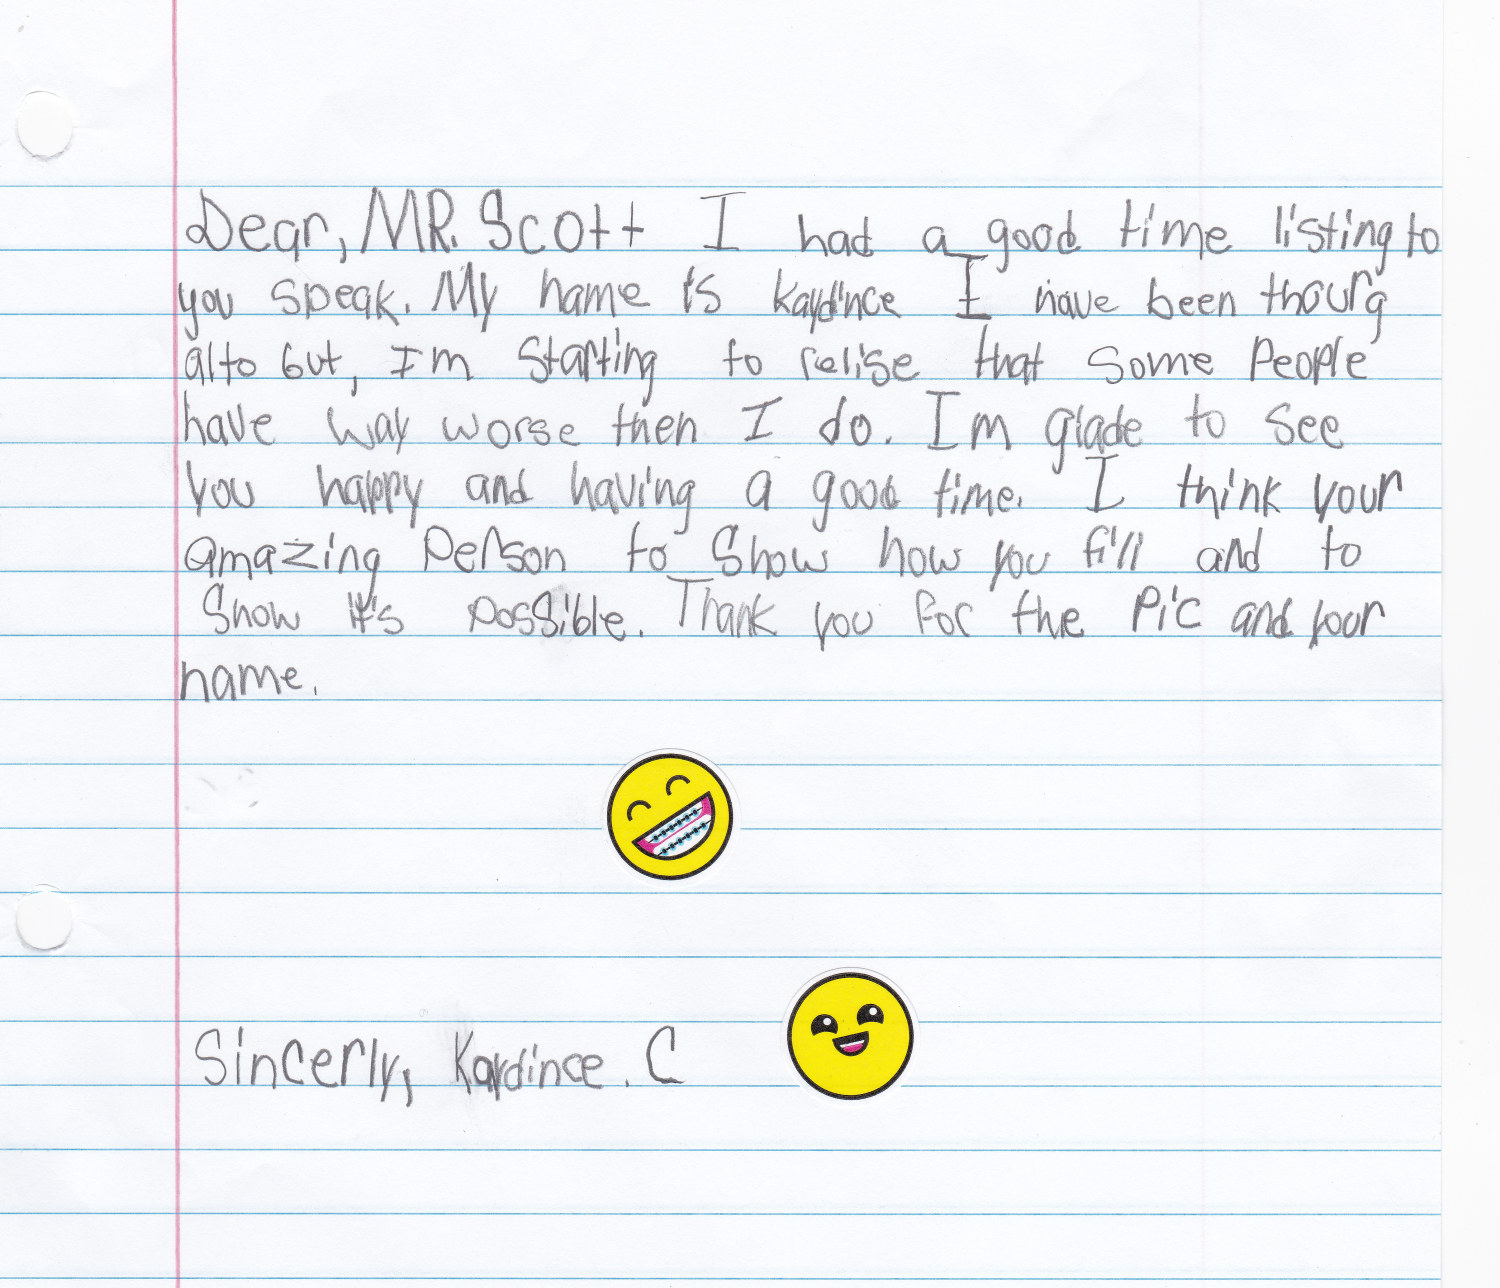 Dear, MR. Scott I had a good time listing to
you speak. My name is kaydince I have been thourg
alto but, I'm starting to relise that some People
have way worse then I do. I'm glade to see
you happy and having a good time. I think your
amazing Person to show how you fill and to
Show it's possible. Thank you for the Pic and your
name.
Sincerly, Kaydince. C